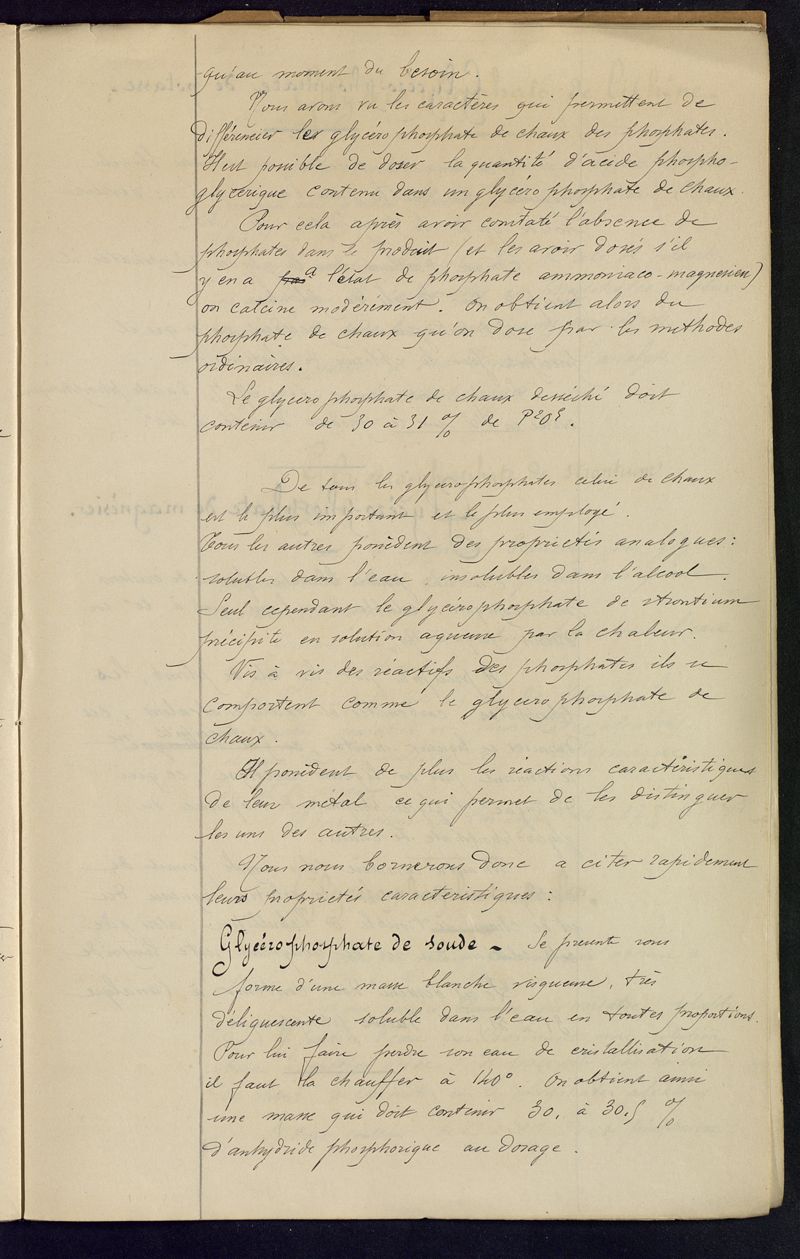 qu'au moment du besoin.
Nous avons vu les caractères qui permettent de
différencier les glycérophosphate de chaux des phosphates.
Il est possible de doser la quantité d'acide phospho-
glycérique contenu dans un glycérophosphate de chaux.
Pour cela après avoir constaté l'absence de
phosphates dans le produit (et les avoir dosés s'il
y en a a l'état de phosphate ammoniaco-magnésien)
on calcine modérément. On obtient alors du
phosphate de chaux qu'on dose par les méthodes
ordinaires.
Le glycérophosphate de chaux desséché doit
contenir de 30 à 31 % de P²O⁵.
De tous les glycérophosphates celui de chaux
est le plus important et le plus employé.
Tous les autres possèdent des propriétés analogues :
solubles dans l'eau, insolubles dans l'alcool.
Seul cependant le glycérophosphate de strontium
précipite en solution aqueuse par la chaleur.
Vis à vis des réactifs des phosphates ils se
comportent comme le glycérophosphate de
chaux.
Il possèdent de plus les réactions caractéristiques
de leur métal ce qui permet de les distinguer
les uns des autres.
Nous nous bornerons donc a citer rapidement
leurs propriétés caractéristiques :
Glycérophosphate de soude - Se présente sous
forme d'une masse blanche visqueuse, très
déliquescente soluble dans l'eau en toutes proportions.
Pour lui faire perdre son eau de cristallisation
il faut la chauffer à 140°. On obtient ainsi
une masse qui doit contenir 30, à 30,5 %
d'anhydride phosphorique au dosage.